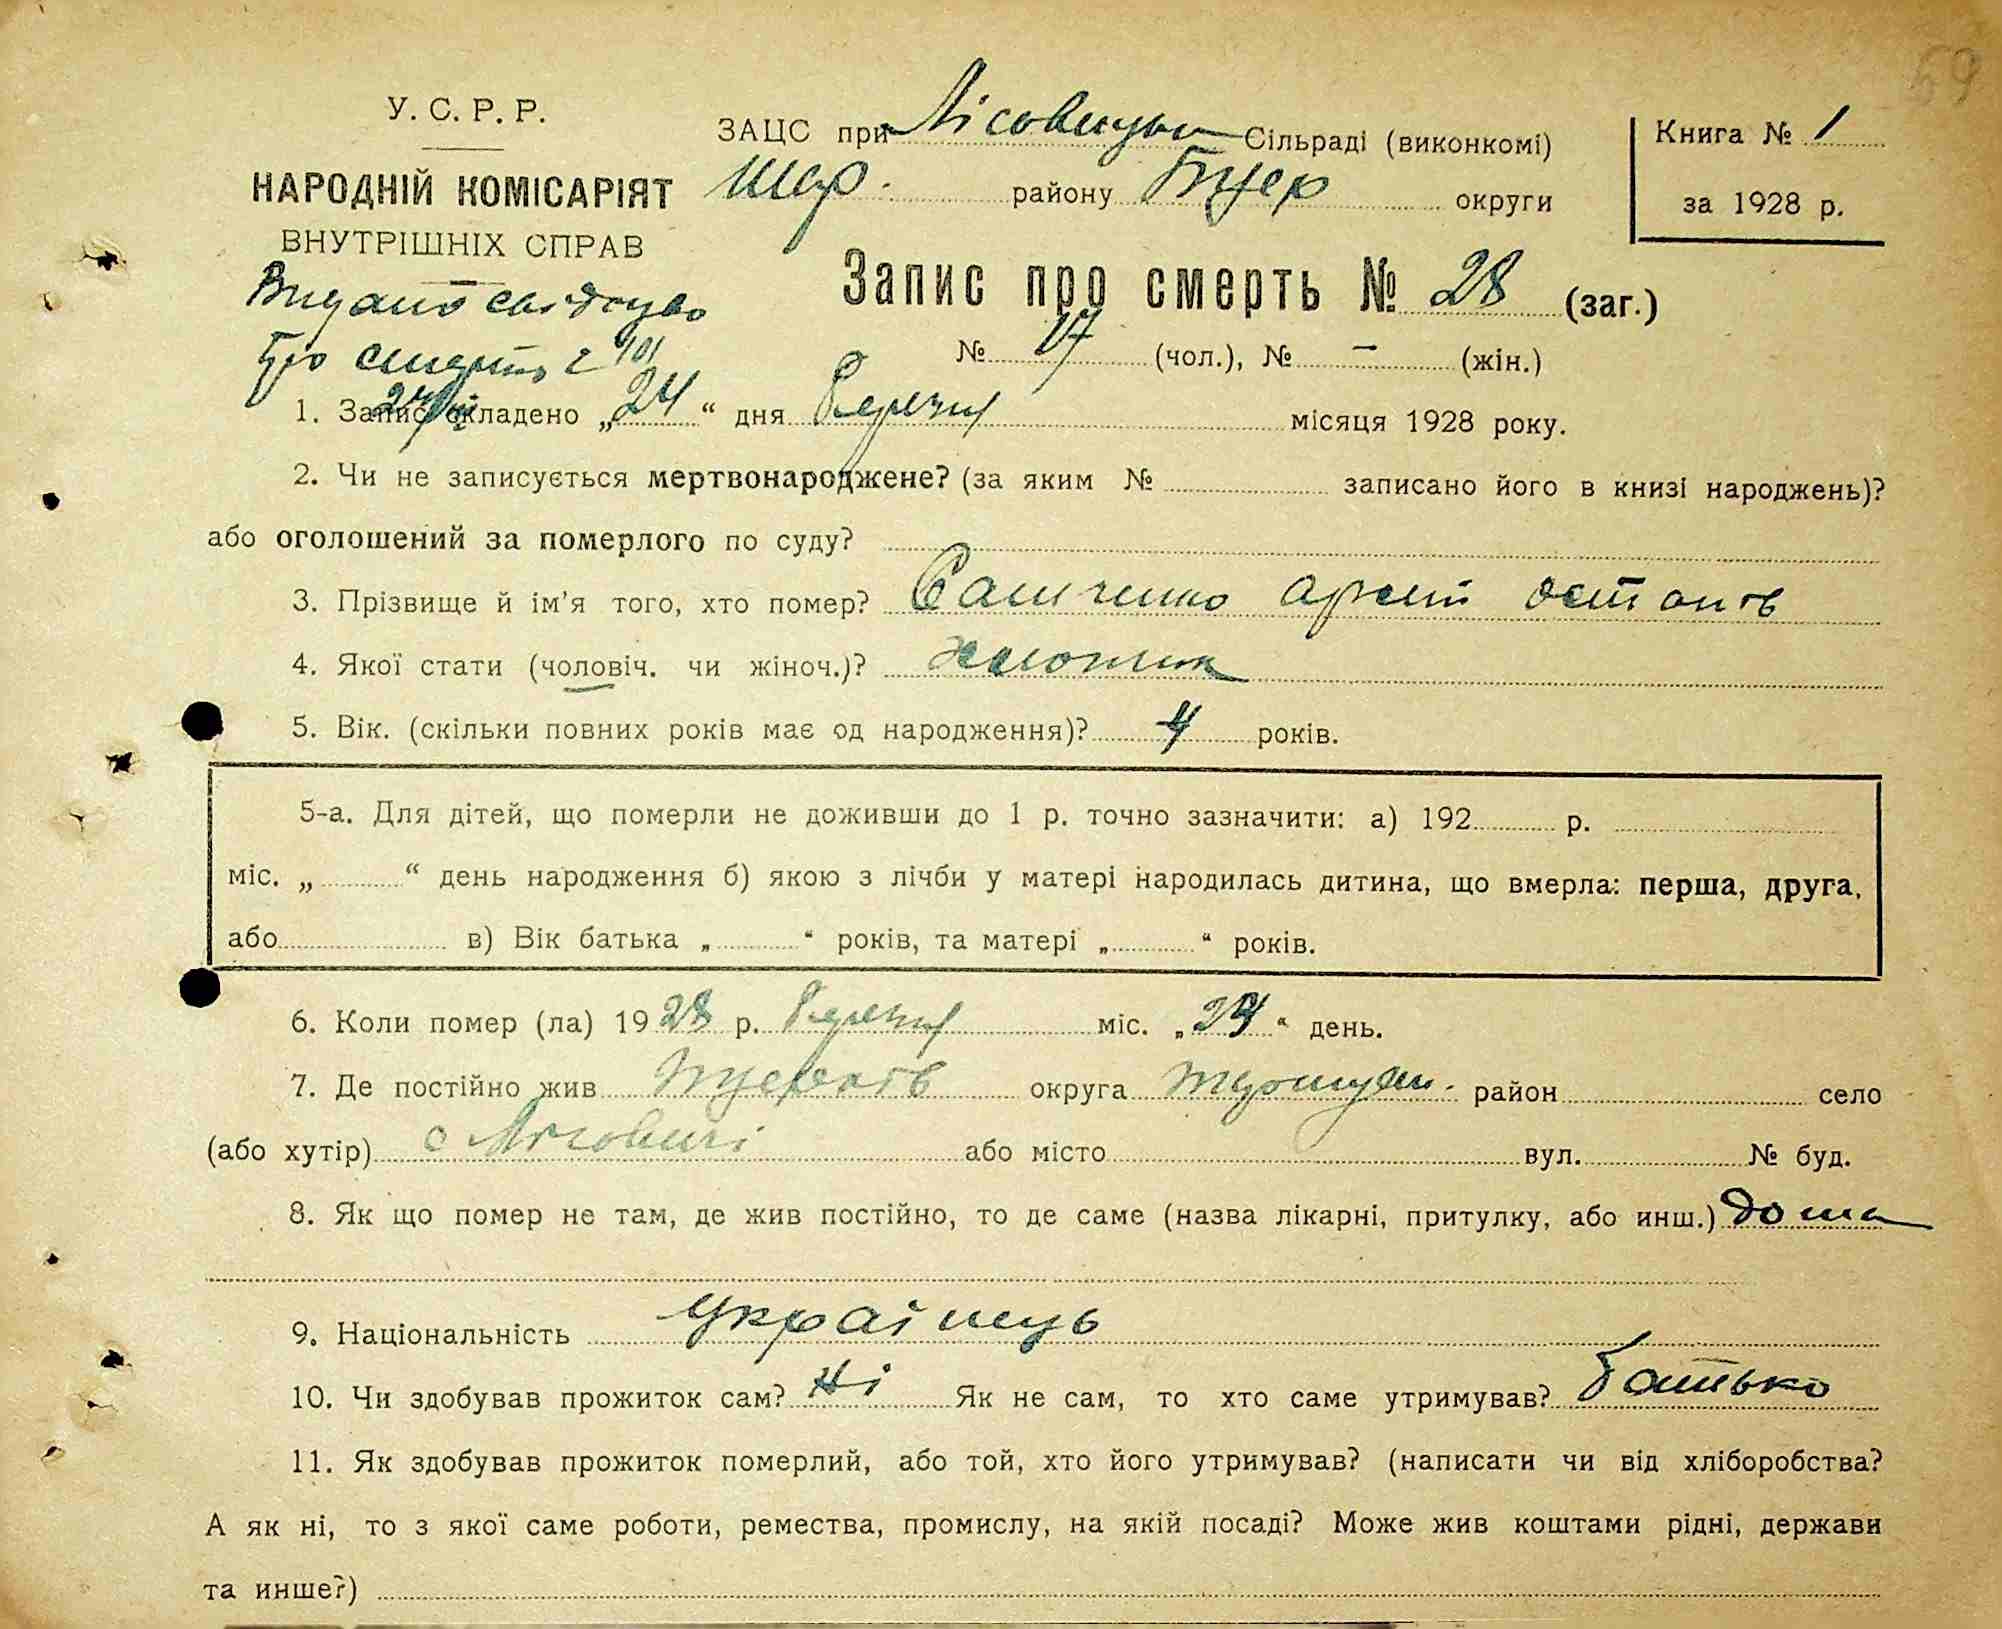 59
У. С. Р. Р.
НАРОДНІЙ КОМІСАРІЯТ
ВНУТРІШНІХ СПРАВ
Видано свідоцво
про смерть 101
24/III
ЗАЦС при Лісовицькі Сільраді (виконкомі)
району округи
Книга № 1
за 1928 р.
Запис про смерть № 28 (заг.)
№ 17 (чол.), № – (жін.)
1. Запис складено „24“ дня березня місяця 1928 року.
2. Чи не записується мертвонароджене? (за яким № записано його в книзі народжень)?
або оголошений за померлого по суду?
3. Прізвище й ім'я того, хто помер? остапів
4. Якої стати (чоловіч. чи жіноч.)? хлопчик
5. Вік. (скільки повних років має од народження)? 4 років.
5-а. Для дітей, що померли не доживши до 1 р. точно зазначити: а) 192 р.
міс. „ “ день народження б) якою з лічби у матері народилась дитина, що вмерла: перша, друга,
або в) Вік батька „ “ років, та матері „ “ років.
6. Коли помер (ла) 1928 р. березня міс. „24“ день.
7. Де постійно жив округа район село
(або хутір) с Лісовичі або місто вул. № буд.
8. Як що помер не там, де жив постійно, то де саме (назва лікарні, притулку, або инш.) дома
9. Національність українець
10. Чи здобував прожиток сам? ні Як не сам, то хто саме утримував? батько
11. Як здобував прожиток померлий, або той, хто його утримував? (написати чи від хліборобства?
А як ні, то з якої саме роботи, ремества, промислу, на якій посаді? Може жив коштами рідні, держави
та инше?)